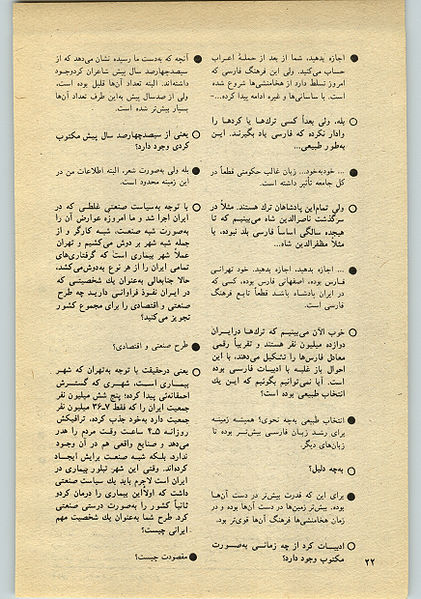 ● اجازه بدهید، شما از بعد از حملهٔ اعراب
حساب می‌کنید. ولی این فرهنگ فارسی که
امروز تسلط دارد از هخامنشی‌ها شروع شده
است، با ساسانی‌ها و غیره ادامه پیدا کرده...–
○ بله، ولی بعداً کسی ترک‌ها یا کردها را
وادار نکرده که فارسی یاد بگیرند. این
به‌طور طبیعی...
● ... خودبه‌خود... زبان غالب حکومتی قطعاً در
کل جامعه تأثیر داشته است.
○ ولی تمام‌این پادشاهان ترک هستند. مثلاً در
سرگذشت ناصرالدین شاه می‌بینیم که تا
هیجده سالگی اساساً فارسی بلد نبوده، یا
مثلاً مظفرالدین شاه...
● ... اجازه بدهید، اجازه بدهید. خود تهرانی
فارس بوده، اصفهانی فارس بوده، کسی که
در ایران پادشاه باشد قطعاً تابع فرهنگ
فارسی است.
○ خوب الآن می‌بینیم که ترک‌ها درایران
دوازده میلیون نفر هستند و تقریباً رقمی
معادل فارس‌ها را تشکیل می‌دهند، با این
احوال باز غلبه با ادبیات فارسی بوده
است. آیا نمی‌توانیم بگوئیم که این یک
انتخاب طبیعی بوده است؟
● انتخاب طبیعی به‌چه نحوی؟ همیشه زمینه
برای رشد زبان فارسی بیش‌تر بوده تا
زبان‌های دیگر.
○ به‌چه دلیل؟
● برای این که قدرت بیش‌تر در دست آن‌ها
بوده. بیش‌تر زمین‌ها در دست آن‌ها بوده و از
زمان هخامنشی‌ها فرهنگ آن‌ها قوی‌تر بود.
○ ادبیات کرد از چه زمانی به‌صورت
مکتوب وجود دارد؟
● آنچه که به‌دست ما رسیده نشان می‌دهد که از
سیصدچهارصد سال پیش شاعران کردوجود
داشته‌اند. البته تعداد آن‌ها قلیل بوده است.
ولی از صدسال پیش به‌این طرف تعداد آن‌ها
بسیار بیش‌تر شده است.
○ یعنی از سیصدچهارصد سال پیش مکتوب
کردی وجود دارد؟
● بله ولی به‌صورت شعر. البته اطلاعات من در
این زمینه محدود است.
○ با توجه به‌سیاست صنعتی غلطی که در
ایران اجرا شد و ما امروزه عوارض آن را
به‌صورت شبه صنعت، شبه کارگر و از
جمله شبه شهر بر دوش می‌کشیم و تهران
عملاً شهر بیماری است که گرفتاری‌های
تمامی ایران را از هر نوع به‌دوش‌می‌کشد،
حالا جنابعالی به‌عنوان یک شخصیتی که
در ایران نفوذ فراوانی دارید چه طرح
صنعتی و اقتصادی را برای مجموع کشور
تجویز می‌کنید؟
● طرح صنعتی و اقتصادی؟
○ یعنی درحقیقت با توجه به‌تهران که شهر
بیماری است، شهری که گسترش
احمقانه‌ئی پیدا کرده؛ پنج شش میلیون نفر
جمعیت ایران را که فقط ۷–۳۶ میلیون نفر
جمعیت دارد به‌خود جذب کرده، ترافیکش
روزانه ۲.۵ ساعت وقت مردم را هدر
می‌دهد و صنایع واقعی هم در آن وجود
ندارد. بلکه شبه صنعت برایش ایجاد
کرده‌اند. وقتی این شهر تبلور بیماری در
ایران است لاجرم باید یک سیاست صنعتی
داشت که اولاًاین بیماری را درمان کردو
ثانیاً کشور را به‌صورت درستی صنعتی
کرد. طرح شما به‌عنوان یک شخصیت مهم
ایرانی چیست؟
● مقصودت چیست؟
۲۲